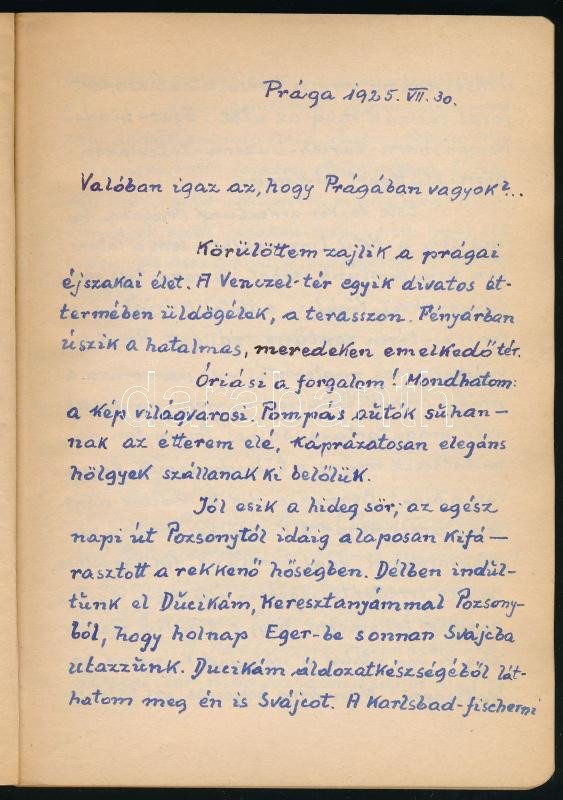 Prága 1925. VII. 30.
Valóban igaz az, hogy Prágában vagyok?..
Körülöttem zajlik a prágai
éjszakai élet. A Venczel-tér egyik divatos ét-
termében üldögélek, a terasszon. Fényárban
úszik a hatalmas, meredeken emelkedő tér.
Óriási a forgalom! Mondhatom:
a kép világvárosi. Pompás autók suhan-
nak az étterem elé, káprázatosan elegáns
hölgyek szállanak ki belőlük.
Jól esik a hideg sör; az egész
napi út Pozsonytól idáig alaposan kifá-
rasztott a rekkenő hőségben. Délben indul-
tunk el Ducikám, keresztanyámmal Pozsony-
ból, hogy holnap Eger-be s onnan Svájcba
utazzunk. Ducikám áldozatkészségéből lát-
hatom meg én is Svájcot. A Karlsbad-fischerni
darabanth